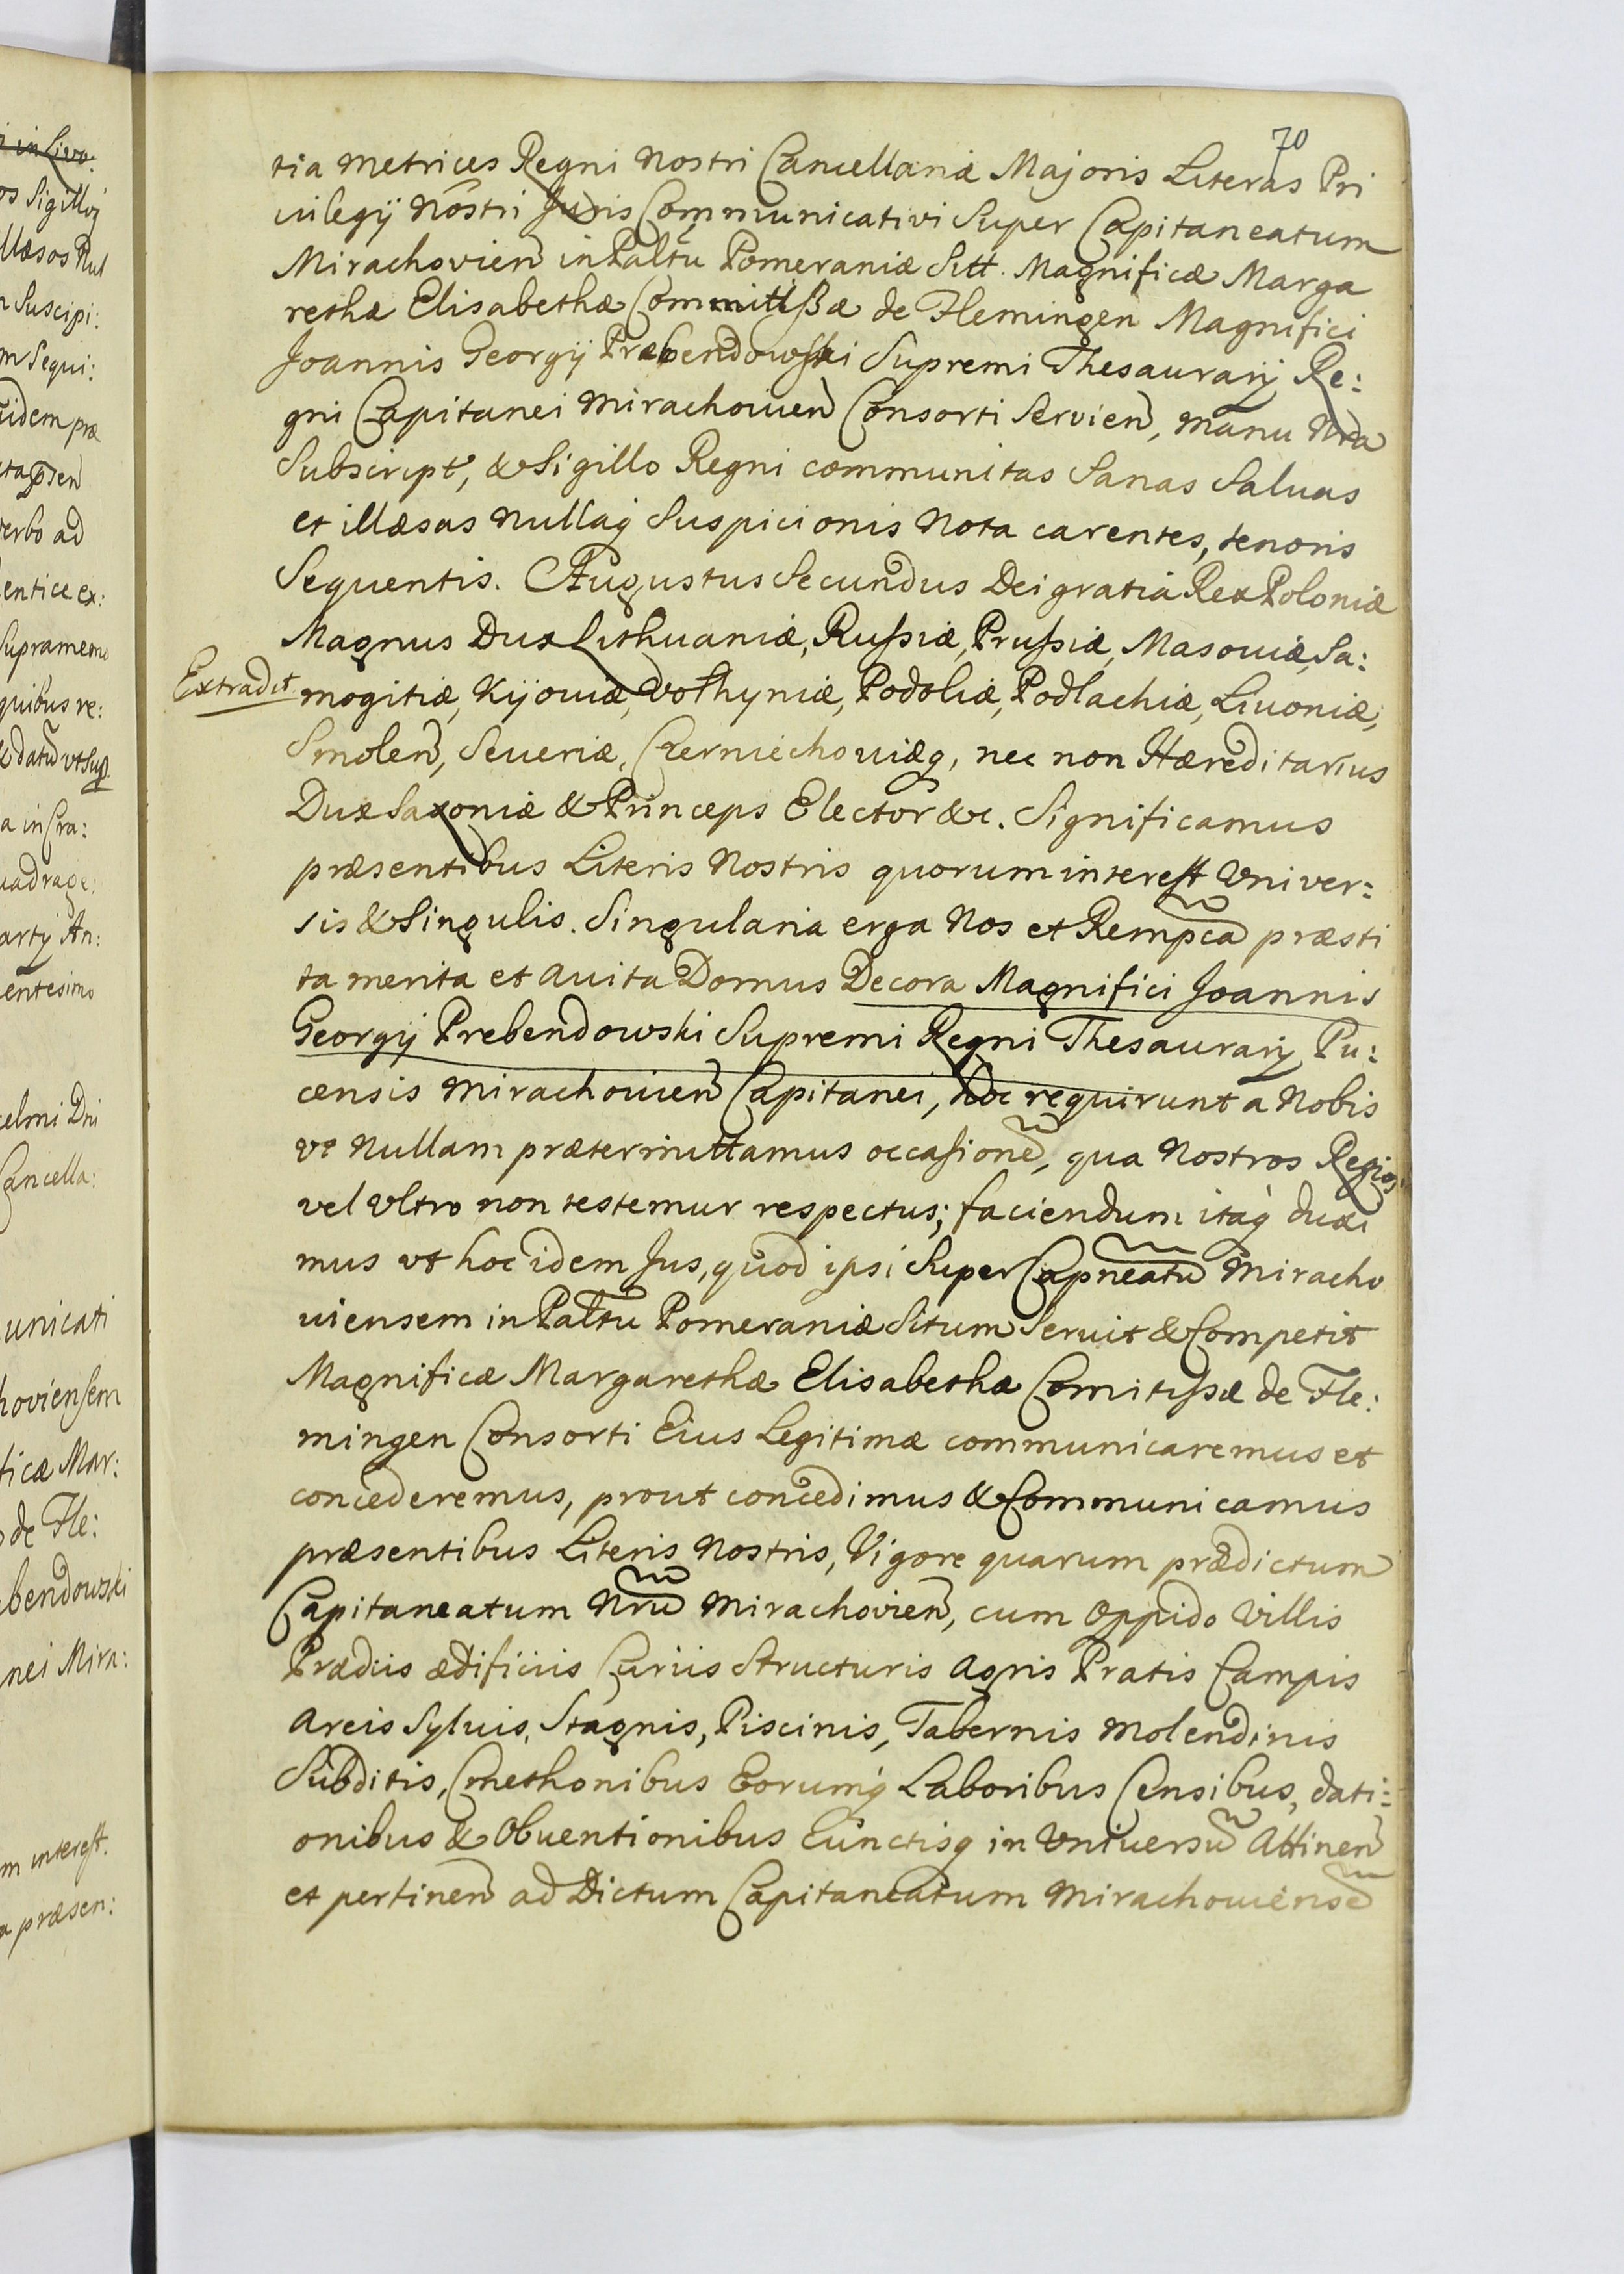 70
tia Metrices Regni Nostri Cancellariæ Majoris Literas Pri
uilegij Nostri Juris Communicativi Super Capitaneatum
Mirachovien in Paltu Pomeraniæ Sitt. Magnificæ Marga
rethæ Elisabethæ Commitißæ de Flemingen Magnifici
Joannis Georgij Præbendowski Supremi Thesaurarij Re:
gni Capitanei Mirachouien Consorti Servien, manu Nra
Subscript, & Sigillo Regni communitas Sanas Saluas
et illæsas Nullaq Suspicionis Nota carentes, tenoris
Sequentis. Augustus Secundus Dei gratia Rex Poloniæ
Magnus Dux Lithuaniæ, Russiæ, Prussiæ, Masouiæ, Sa:
Extradit
mogitiæ, Kijouiæ, Volhyniæ, Podoliæ, Podlachiæ, Liuoniæ,
Smolen, Seueriæ, Czerniechouiæq, nec non Hæreditarius
Dux Saxoniæ & Princeps Elector &c. Significamus
præsentibus Literis Nostris quorum interest Univer:
sis & Singulis. Singularia erga Nos et Rempca præsti
ta merita et auita Domus Decora Magnifici Joannis
Georgij Prebendowski Supremi Regni Thesaurarij Pu:
censis Mirachouien Capitanei, hoc requirunt a Nobis
vt Nullam prætermittamus occasione, qua Nostros Regios
vel Vltro non testemur respectus; faciendum itaq duxi
mus vt hoc idem Jus, quod ipsi Super Capneatu Miracho
uiensem in Paltu Pomeraniæ Situm Seruit & Competit
Magnificæ Margarethæ Elisabethæ Comitissæ de Fle:
mingen Consorti Eius Legitimæ communicaremus et
concederemus, prout concedimus & Communicamus
præsentibus Literis Nostris, Vigore quarum prædictum
Capitaneatum Nru Mirachovien, cum Oppido Villis
Prædiis ædificiis Curiis Structuris Agris Pratis Campis
Areis Syluis, Stagnis, Piscinis, Tabernis Molendinis
Subditis, Cmethonibus Eorumq Laboribus Censibus, dati:
onibus & Obuentionibus Cunctisq in Vniuersu Attinen
et pertinen ad Dictum Capitaneatum Mirachouiense